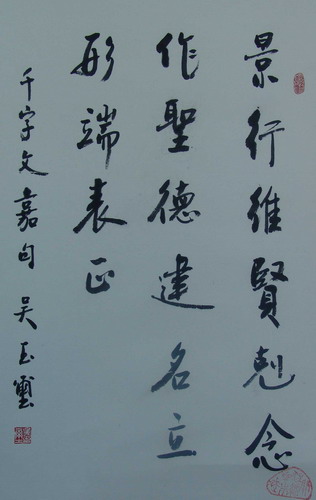 景行維賢剋念
作聖德建名立
形端表正
千字文嘉句 吴玉璽